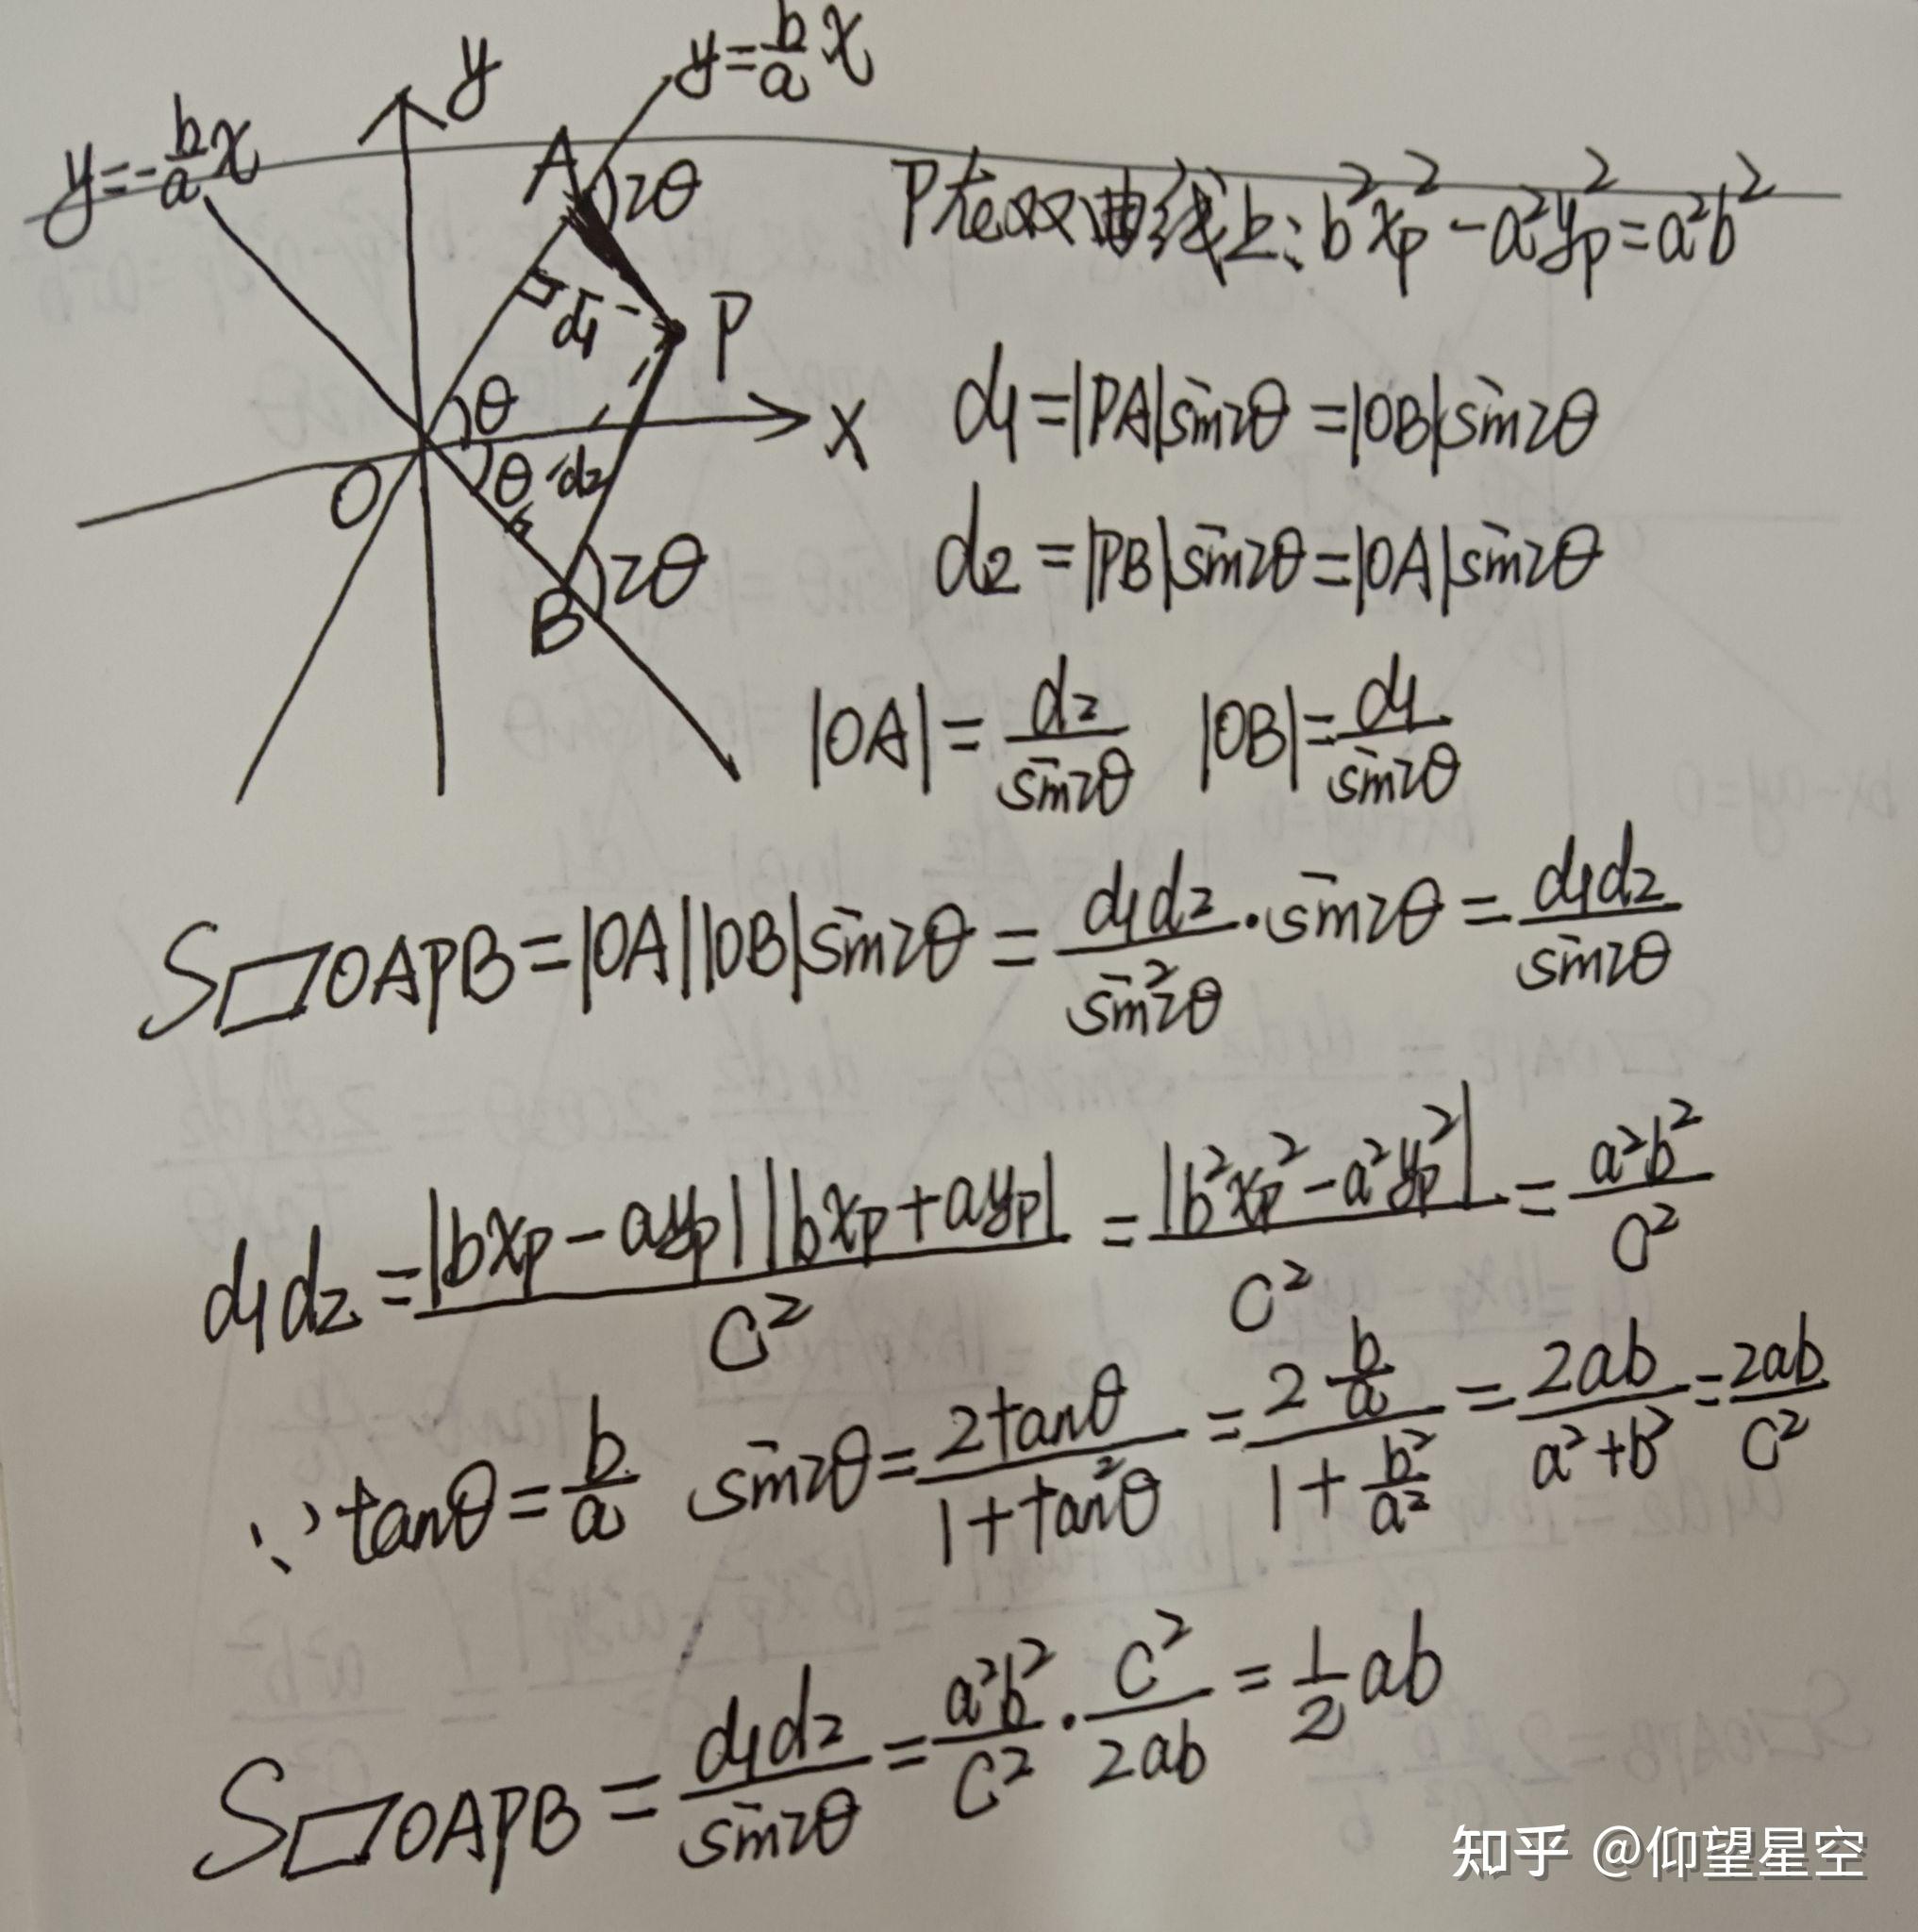 y=-b/a x
y
y=b/a x
A
2θ
d1
P
θ
x
O
θ
d2
2θ
B
P在双曲线上:b²xp²-a²yp²=a²b²
d1=|PA|sin2θ=|OB|sin2θ
d2=|PB|sin2θ=|OA|sin2θ
|OA|=d2/sin2θ |OB|=d1/sin2θ
S▱OAPB=|OA||OB|sin2θ=d1d2/sin²2θ·sin2θ=d1d2/sin2θ
d1d2=|bxp-ayp||bxp+ayp|/c²=|b²xp²-a²yp²|/c²=a²b²/c²
∵tanθ=b/a sin2θ=2tanθ/(1+tan²θ)=2b/a/(1+b²/a²)=2ab/(a²+b²)=2ab/c²
S▱OAPB=d1d2/sin2θ=a²b²/c²·c²/2ab=1/2ab
知乎 @仰望星空